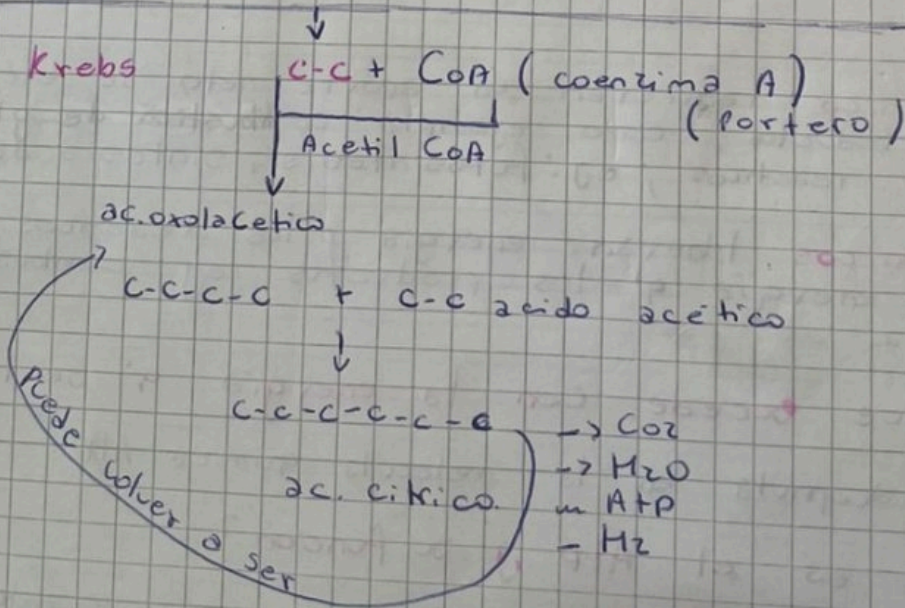 Krebs C-C + CoA ( coenzima A)
(Portero)
Acetil CoA
ac.oxolacetico
C-C-C-C + C-C acido acético
C-C-C-C-C-C -> CO2
-> H2O
ac. citrico. - AtP
- H2
Puede volver a ser